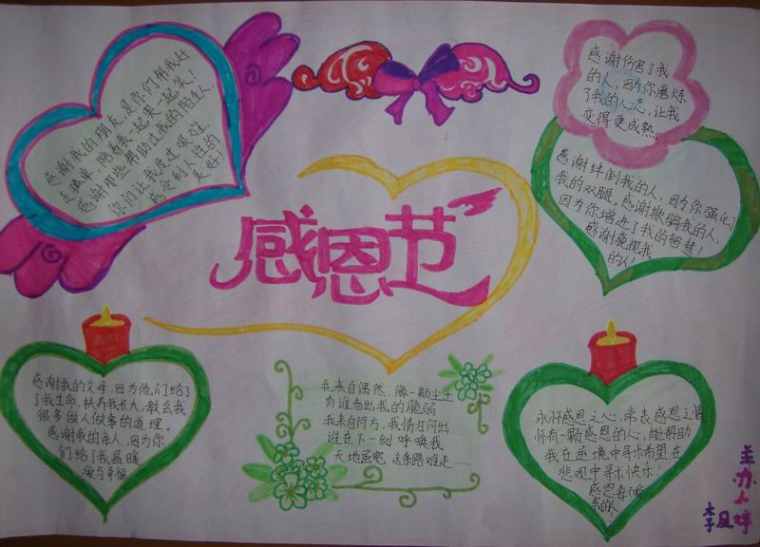 感恩节
感谢我的朋友,是你们帮我赶
走孤单,陪着我一起哭一起笑!
感谢那些帮助过我的陌生人,
你们让我度过难关,
感觉到人性的
美好
感谢伤害了我
的人,因为你磨炼
了我的心志,让我
变得更成熟
感谢绊倒我的人,因为你强化了
我的双腿。感谢欺骗我的人,
因为你增进了我的智慧!
感谢藐视我
的人!
感谢我的父母,因为他们给了
了我生命,抚养我长大,教会我
很多做人做事的道理。
感谢我的亲人,因为你
们给了我温暖
爱与幸福
我来自偶然,像一颗尘土
有谁看出我的脆弱
我来自何方,我情归何出
谁在下一刻呼唤我
天地虽宽,这条路难走
永怀感恩之心,常表感恩之情
怀有一颗感恩的心,能帮助
我在逆境中寻求希望,在
悲观中寻求快乐!
主办人